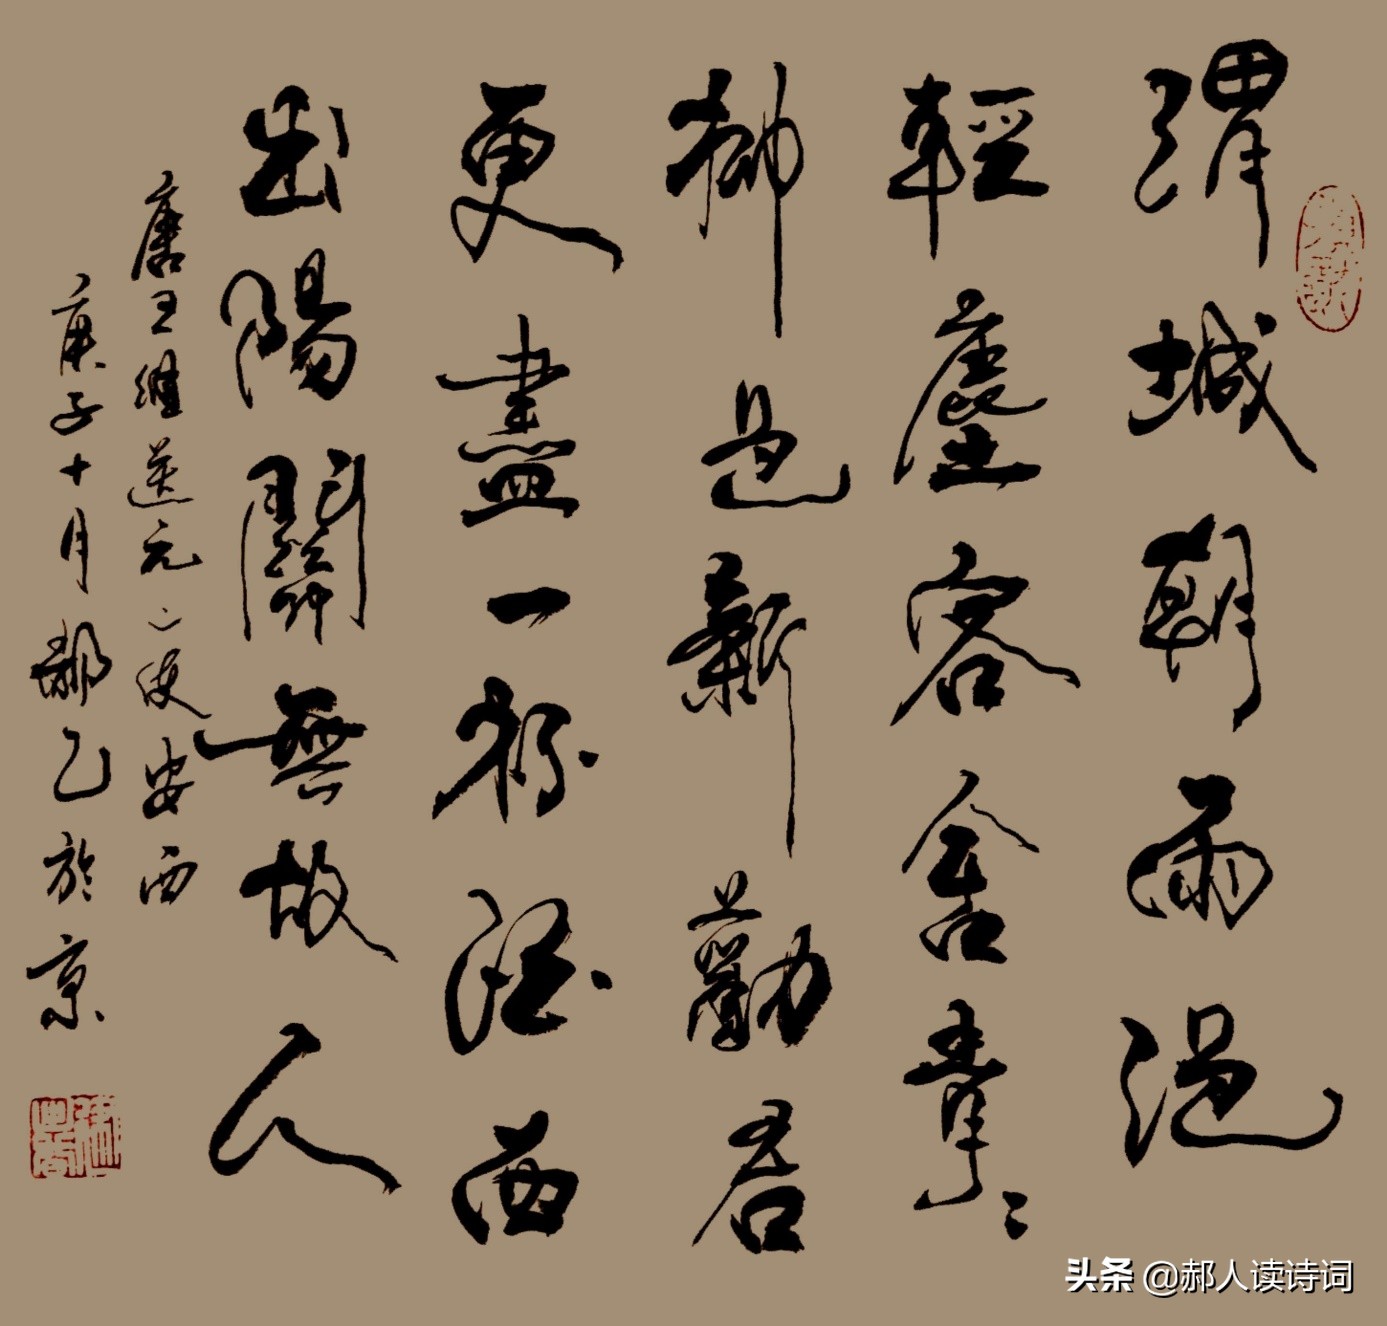 渭城朝雨浥
輕塵客舍青〻
柳色新勸君
更盡一杯酒西
出陽關無故人
唐王維送元二使安西
庚子十月郝乙於京
头条 @郝人读诗词